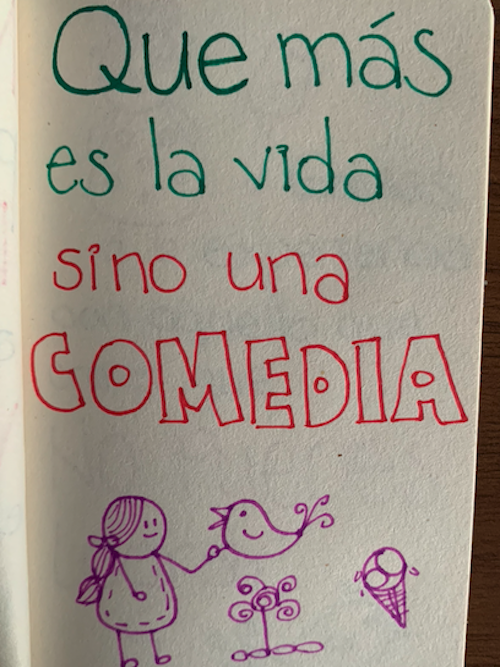 Que más
es la vida
sino una
COMEDIA